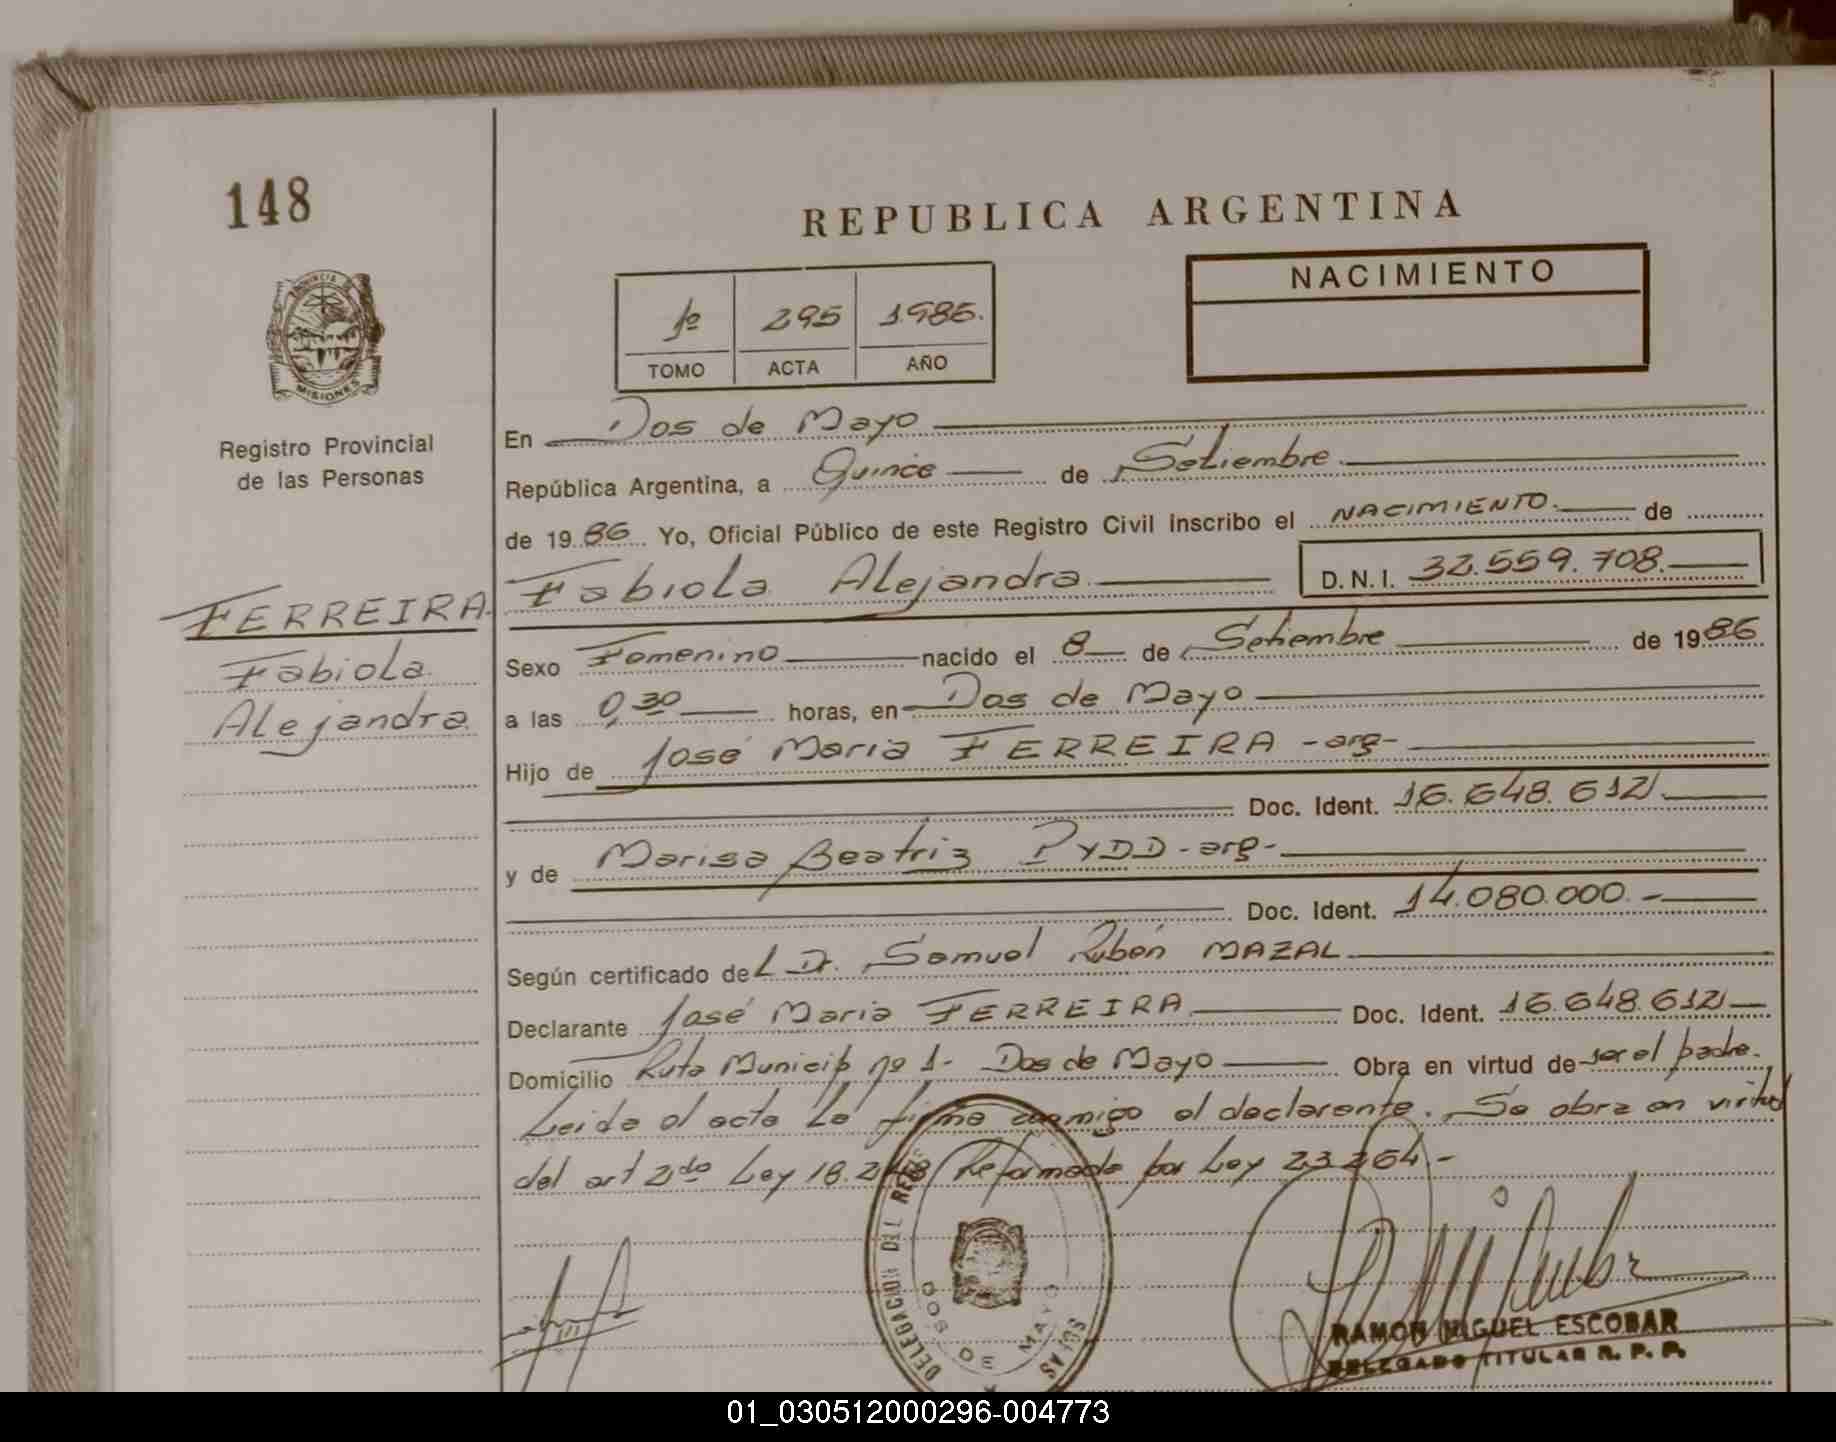 148
PROVINCIA DE
MISIONES
Registro Provincial
de las Personas
FERREIRA
Fabiola
Alejandra
REPUBLICA ARGENTINA
1º 295 1986.
TOMO ACTA AÑO
NACIMIENTO
En Dos de Mayo
República Argentina, a Quince de Setiembre
de 1986 Yo, Oficial Público de este Registro Civil inscribo el NACIMIENTO de
Fabiola Alejandra D.N.I. 32.559.708.
Sexo Femenino nacido el 8 de Setiembre de 1986
a las 0,30 horas, en Dos de Mayo
Hijo de José Maria FERREIRA -arg-
Doc. Ident. 16.648.612
y de Marisa Beatriz PYDD -arg-
Doc. Ident. 14.080.000.-
Según certificado del Dr. Samuel Rubén MAZAL
Declarante José Maria FERREIRA Doc. Ident. 16.648.612
Domicilio Ruta Municip nº 1- Dos de Mayo Obra en virtud de ser el padre.
Leida el acta la firma conmigo el declarante. Se obra en virtud
del art 2do Ley 18.248 Reformada por Ley 23.264.-
DELEGACION DEL REG.
DOS DE MAYO
RAMON MIGUEL ESCOBAR
DELEGADO TITULAR R. P. P.
01_030512000296-004773